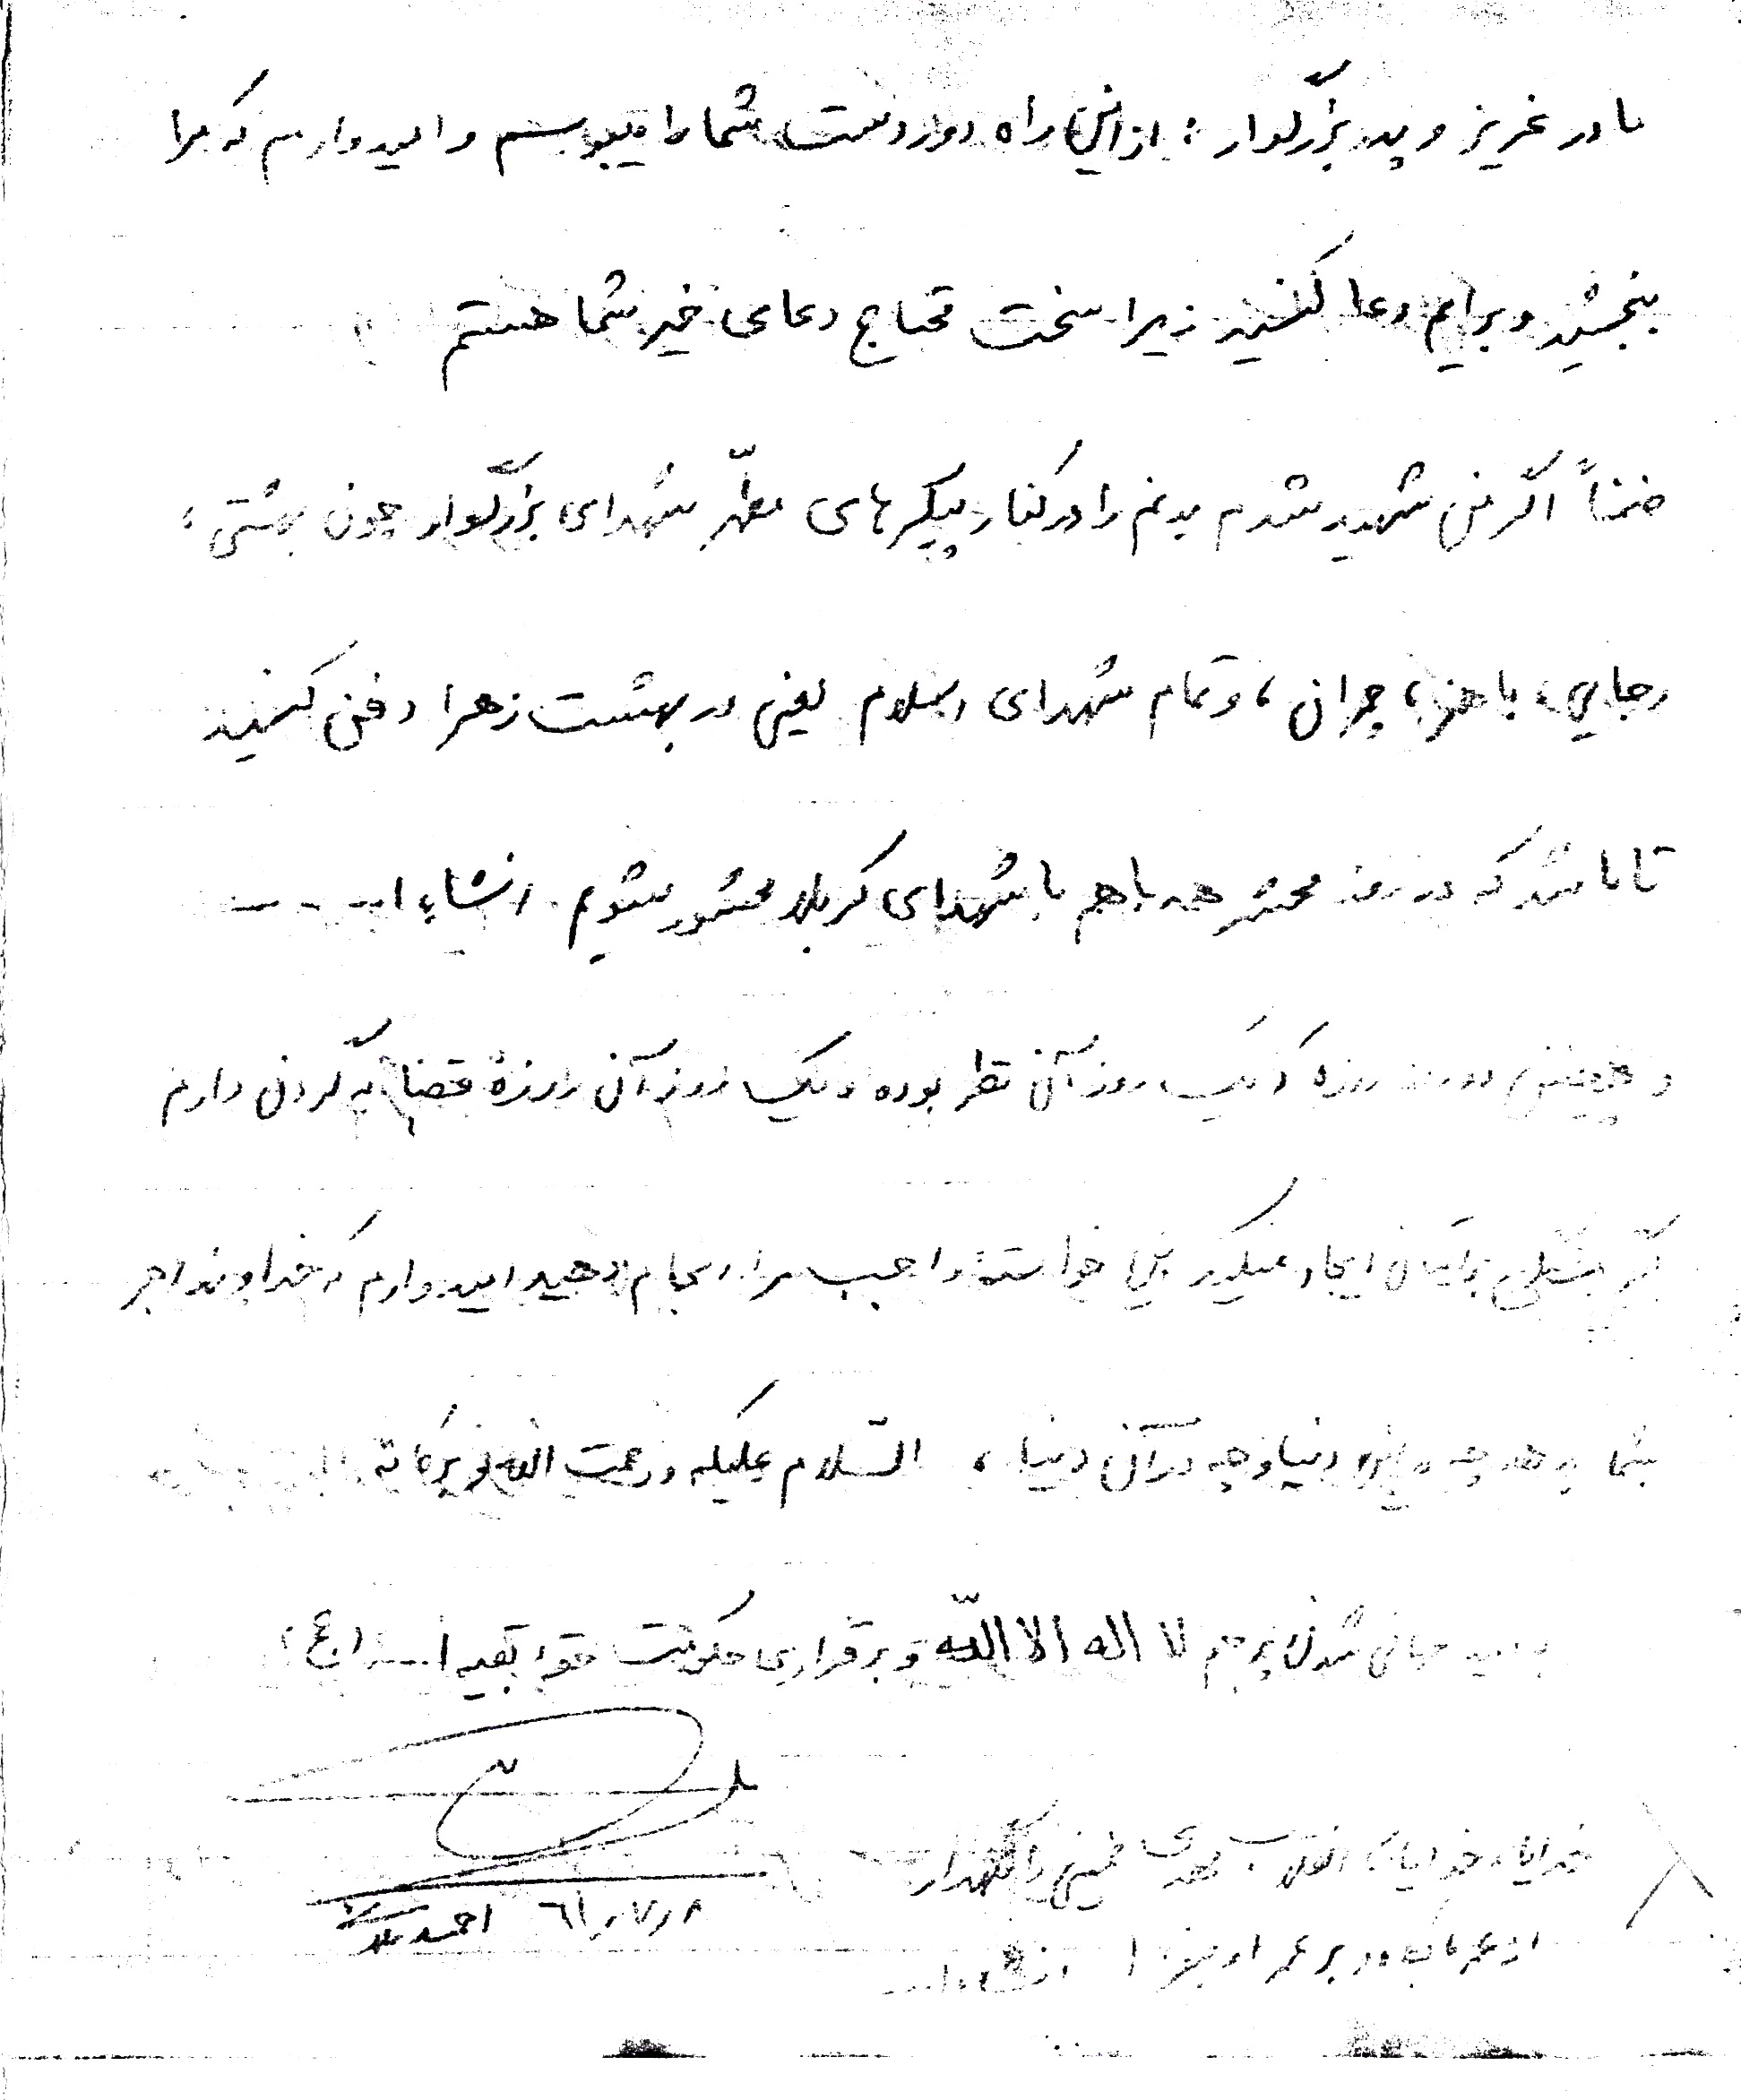 مادر عزیز و پدر بزرگوار : از این راه دور دست شما را میبوسم و امیدوارم که مرا
ببخشید و برایم دعا کنید زیرا سخت محتاج دعای خیر شما هستم
ضمناً اگر من شهید شدم بدنم را در کنار پیکرهای مطهّر شهدای بزرگوار چون بهشتی ،
رجایی ، باهنر ، چمران ، و تمام شهدای اسلام یعنی در بهشت زهرا دفن کنید
تا باشد که در روز محشر همه باهم با شهدای کربلا محشور شویم . انشاء ا...
و همچنین دو روز روزه که یک روز آن نظر بوده و یک روز آن روزهٔ قضا به گردن دارم
اگر مشکلی برایتان ایجاد نمیکند این خواستهٔ واجب مرا انجام دهید امیدوارم که خداوند اجر
بشما بدهد چه در این دنیا و چه در آن دنیا ، السّلام علیکم و رحمت الله و برکاته
به امید جهانی شدن پرچم لا اله الا اللّه و برقراری حکومت حقهٔ بقیه ا... (عج)
خدایا ، خدایا تا انقلاب مهدی خمینی را نگهدار
از عمر ما بکاه و بر عمر او بیفزا انشاء ا...
۶۱٫۷٫۸ احمد